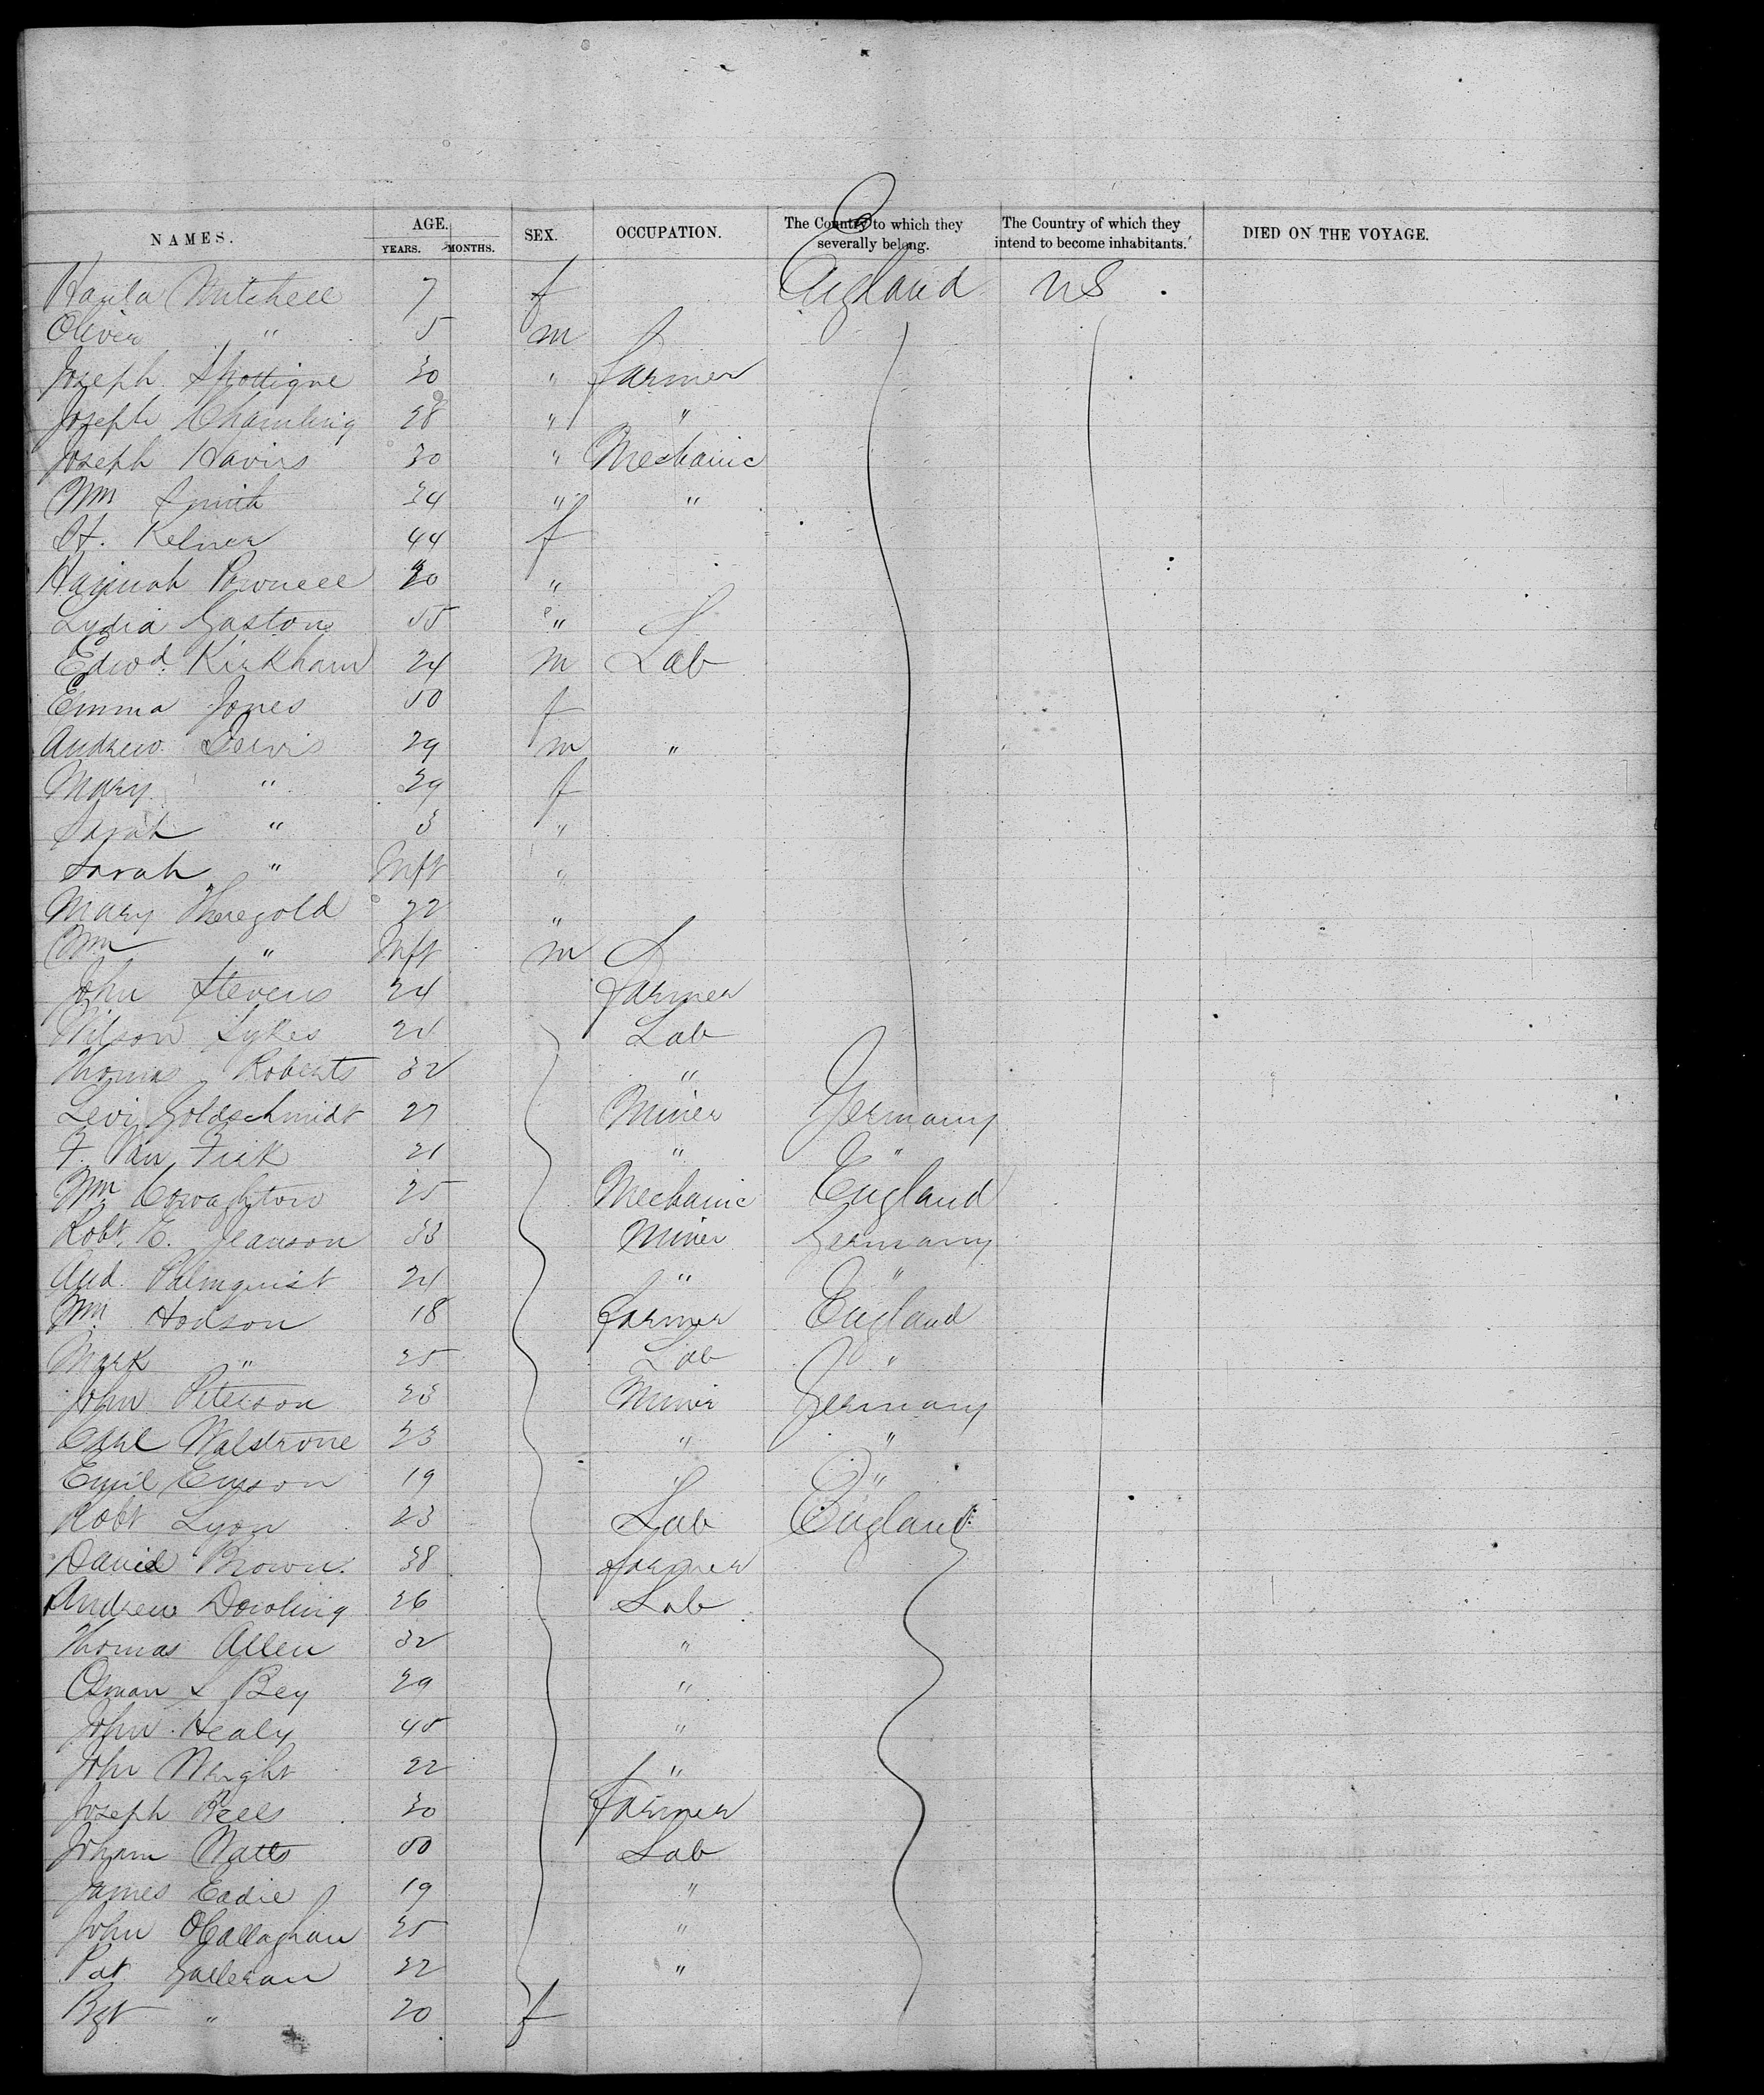 NAMES. AGE. YEARS. MONTHS. SEX. OCCUPATION. The Country to which they severally belong. The Country of which they intend to become inhabitants. DIED ON THE VOYAGE.
Mitchell 7 f England US
Oliver " 5 m
Joseph 30 " Farmer
Joseph 28 " "
Joseph Havirs 30 " Mechanic
Wm Smith 34 " "
St. Kelner 44 f
Hannah Pownell 20 "
Lydia Gaston 55 "
Edwd. Kirkham 24 m Lab
Emma Jones 50 f
Andrew Lewis 29 m "
Mary " 29 f
Sarah " 3 "
Sarah " Inft "
Mary Theregold 22 "
Wm " Inft m
John Stevens 24 Farmer
Wilson Sykes 21 Lab
Thomas Roberts 32 "
Levi Goldschmidt 27 Miner Germany
F. Van Fick 21 " "
Wm 25 Mechanic England
Robt. E. Jeanson 33 Miner Germany
And. Palmquist 24 " "
Wm. Hodson 18 Farmer England
Mark " 25 Lab "
John Peterson 23 Miner Germany
Carl Walstrone 23 " "
Emil 19 " "
Robt Lyon 23 Lab England
David Brown. 38 Farmer
Andrew Dowling 26 Lab
Thomas Allen 32 "
Osman S Bey 29 "
John Healy 45 "
John Wright 22 "
Joseph 30 Farmer
Joham Watts 50 Lab
James Eadie 19 "
John OCallaghan 25 "
Pat Galleran 22 "
Bgt " 20 f